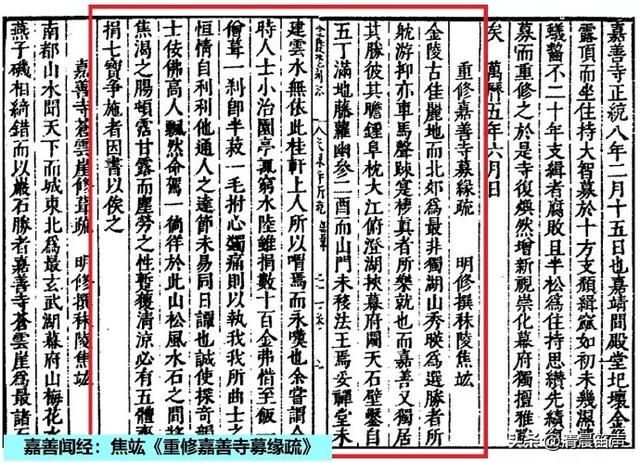 嘉善寺正統八年二月十五日也嘉靖間殿堂圮壞金
露頂而坐住持大智募於十方支頽緝窳如初未幾濕
蟻齧不二十年支緝者腐敗且半松爲住持思纘先績
募而重修之於是寺復煥然增新視崇化幕府獨擅雅
矣 萬曆五年六月日
重修嘉善寺募緣疏 明修撰秣陵焦竑
金陵古佳麗地而北郊爲最非獨湖山秀暎爲選勝者所
躭游抑亦車馬聲疎寔棲真者所樂就也而嘉善又以
其勝彼其瞻鍾阜枕大江俯澄湖挾幕府闢天石壁鑿自
五丁滿地藤蘿幽參二酉而山門未稜法王焉妥禪堂未
建雲水無依此桂軒上人所以喟焉而永嘆也余嘗謂今
時人士小治園亭輒窮水陸雖捐數十百金弗惜至飯一
偷葺一刹卽半菽一毛拊心蠲痛則以執我我所曲士之
恒情自利利他通人之達節未易同日譚也誠使探奇韻
士伎佛高人飄然命駕一徜徉於此山松風水石之間將
焦渴之膓頓霑甘露而塵勞之性暫獲清涼必有五體
捐七寶爭施者因書以俟之
嘉善寺蒼雲崖修葺疏 明修撰秣陵焦竑
南都山水聞天下而城東北爲最玄武湖幕府山梅花水
燕子磯相錡錯而以巖石勝者嘉善寺蒼雲崖爲最諸石
嘉善闻经：焦竑《重修嘉善寺募缘疏》
头条@清晨笛声